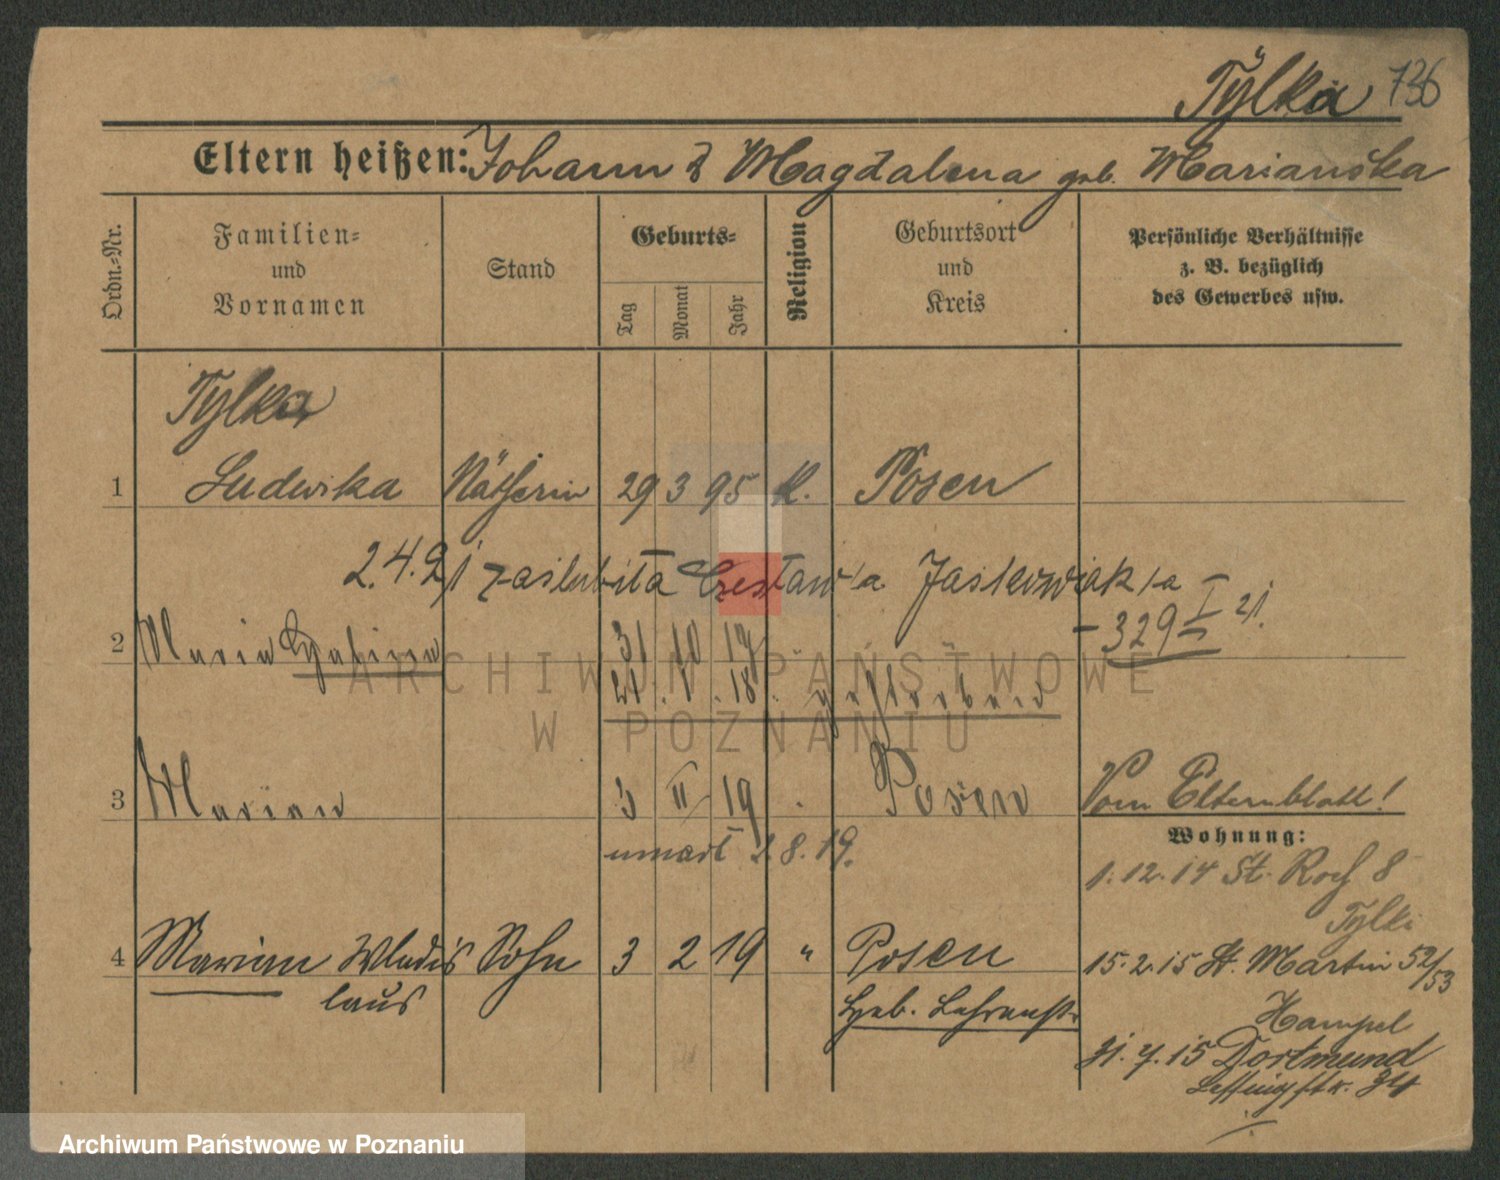 Tylka 736
Eltern heißen: Johann & Magdalena geb. Marianska
Ordn.-Nr.
Familien- und Vornamen
Stand
Geburts-
Tag Monat Jahr
Religion
Geburtsort und Kreis
Persönliche Verhältnisse z. B. bezüglich des Gewerbes usw.
Tylka
1 Ludwika Näherin 29 3 95 K. Posen
2.4.21 zaślubiła Czesława Jaskowiaka
- 329 I 21.
2 Maria 31 10 17
21. 1. 18. gestorben
3 Marian 3 II 19 Posen Vom Elternblatt!
Wohnung:
8. 19.
1. 12. 14 St. Roch 8
Tylki
4 Marian Wladis Sohn 3 2 19 " Posen 15. 2. 15 St. Martin 52/53
laus geb.
Hampel
31. 7. 15 Dortmund
Lessingstr. 34
ARCHIWUM PAŃSTWOWE
W POZNANIU
Archiwum Państwowe w Poznaniu